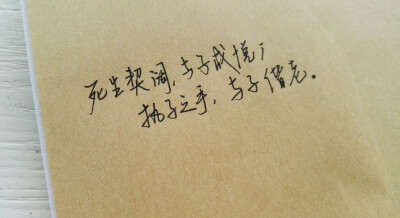 死生契阔,与子成悦;
执子之手,与子偕老。